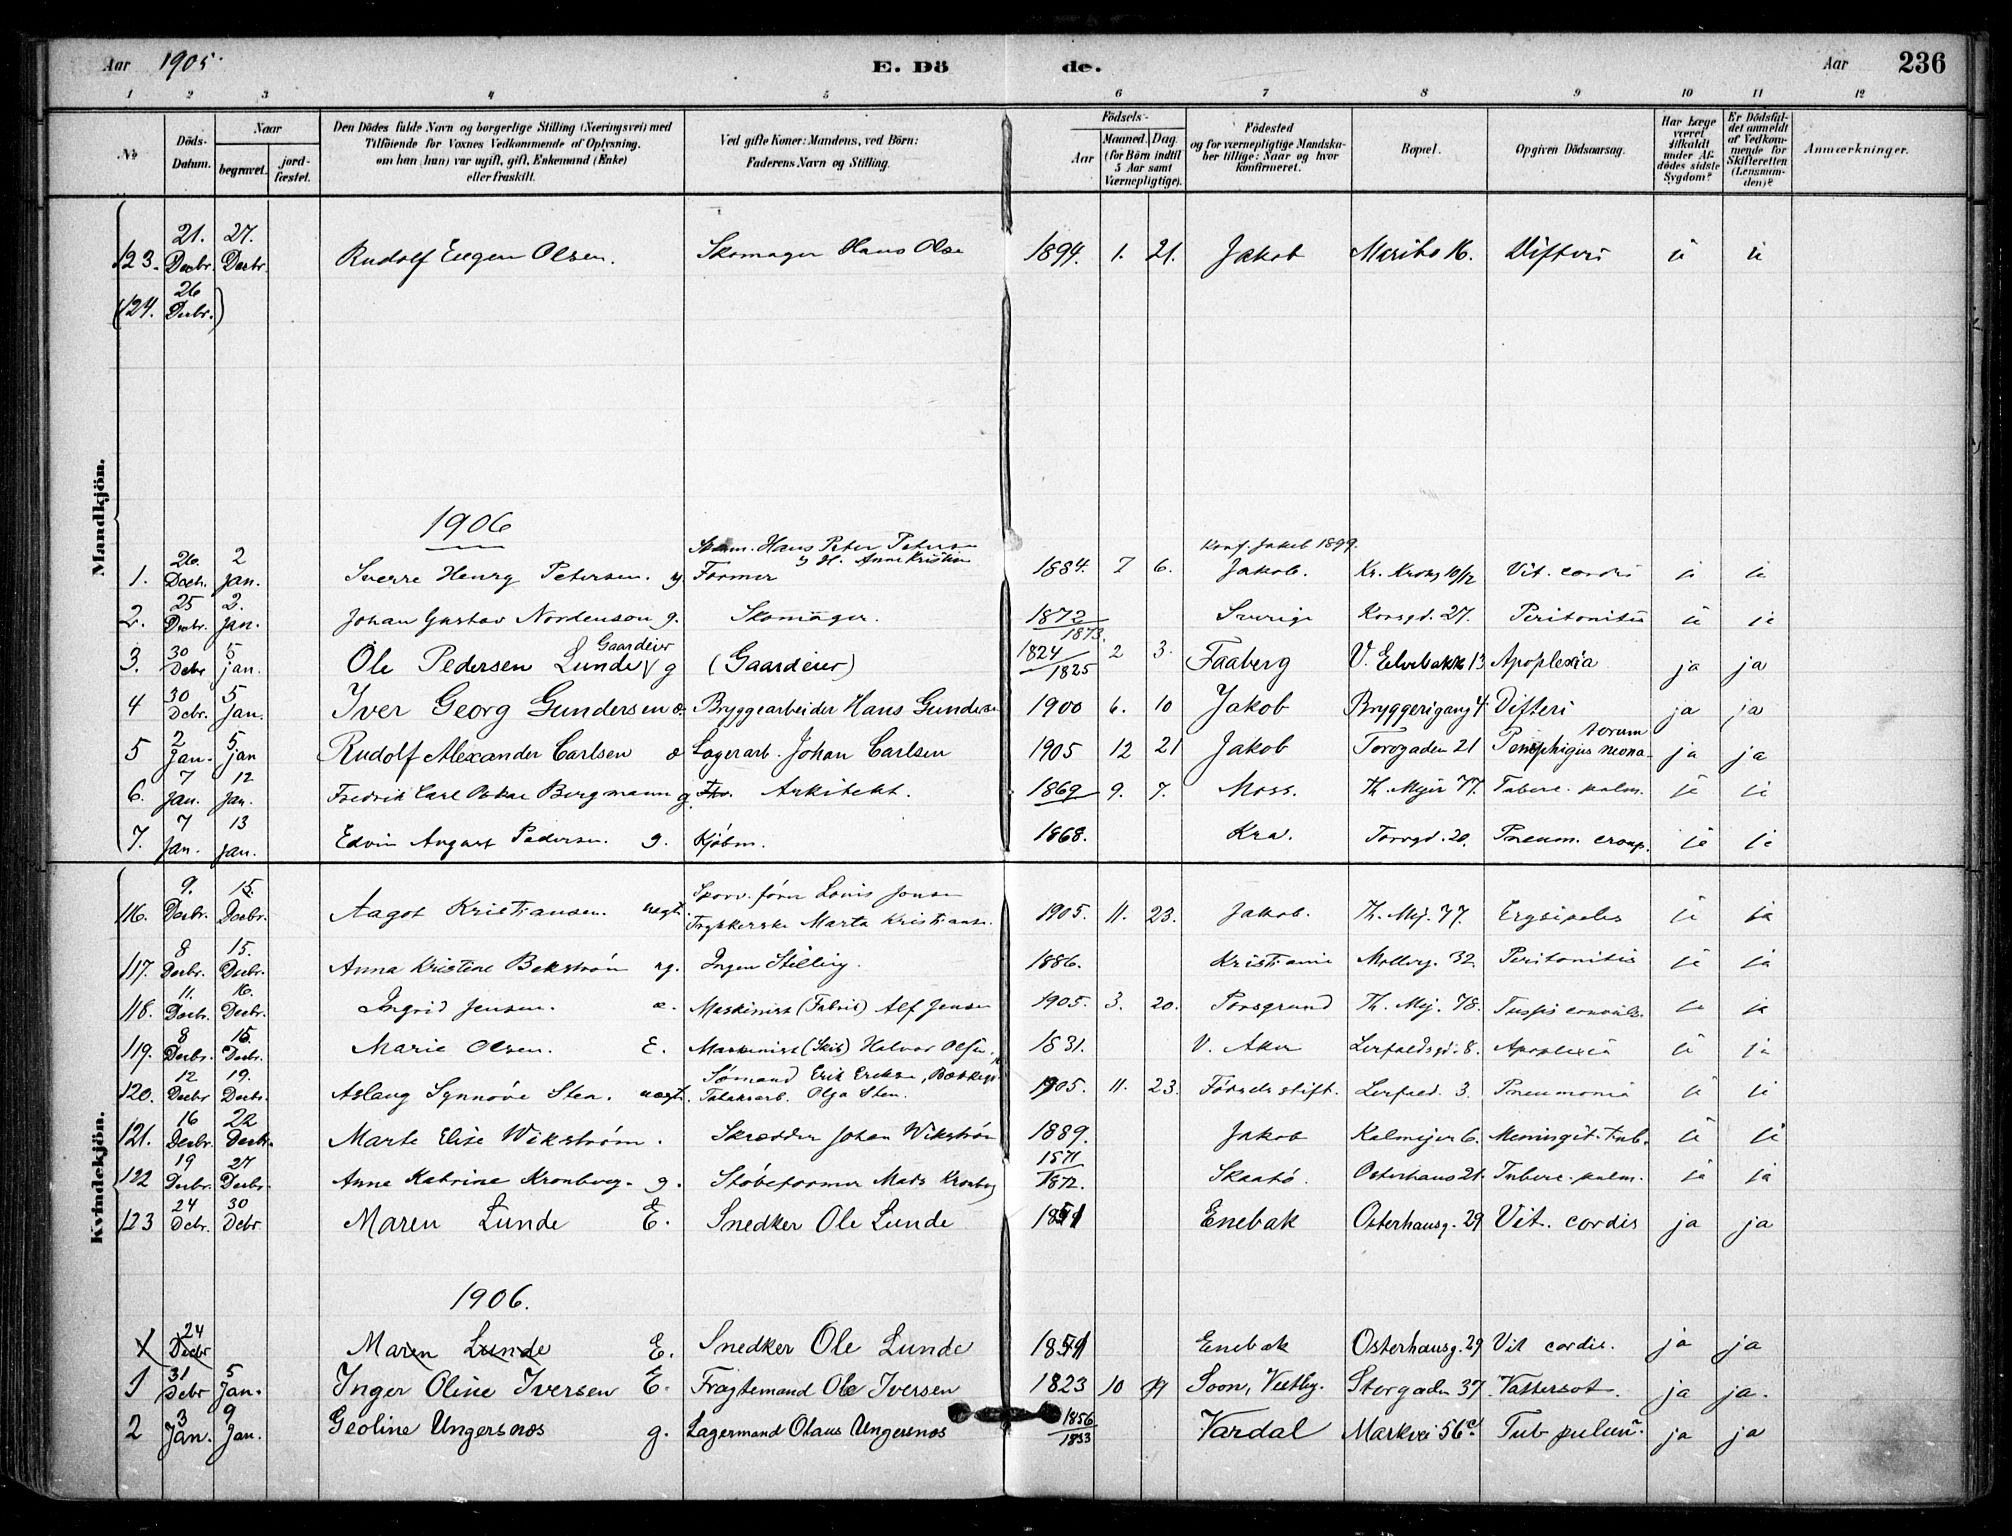 Aar 1905. E. Dö de. Aar 236
1 2 3 4 5 6 7 8 9 10 11 12
No. Döds-Datum. Naar begravet. jord-fæstet. Den Dödes fulde Navn og borgerlige Stilling (Næringsvei) med Tilföiende for Voxnes Vedkommende af Oplysning, om han (hun) var ugift, gift, Enkemand (Enke) eller fraskilt. Ved gifte Koner: Mandens, ved Börn: Faderens Navn og Stilling. Födsels- Aar Maaned. Dag. (for Börn indtil 5 Aar samt Værnepligtige). Födested og for værnepligtige Mandskaber tillige: Naar og hvor konfirmeret. Bopæl. Opgiven Dödsaarsag. Har Læge været tilkaldt under Afdödes sidste Sygdom? Er Dödsfaldet anmeldt af Vedkommende for Skifteretten (Lensmanden)? Anmærkninger.
Mandkjön.
123. 21. Decbr. 27. Decbr. Rudolf Eugen Olsen. Skomager Hans Olse 1894. 1. 21. Jakob Maribo 16. Difteri
(124. 26 Decbr.)
1906
1. 26. Decbr. 2 Jan. Sverre Henry Petersen. Former Hans Peter Petersen 1884. 7 6. Konf. Jakob 1899. Jakob. Kr. Krohg 10/12 Vit. cordis
2. 25 Decbr. 2. Jan. Johan Gustav Nordenson g. Skomager. 1872/1873. Sverige Korsgd. 27. Peritonitis
3. 30 Debr 5 jan. Ole Pedersen Lunde Gaardeier g (Gaardeier) 1824/1825 2 3. Faaberg V. Elvebakk 13 Apoplexia ja ja
4 30 Debr. 5 Jan. Iver Georg Gundersen Bryggearbeider Hans Gunderse 1900 6. 10 Jakob Bryggerigang 4. Difteri ja ja
5 2 Jan. 5 jan Rudolf Alexander Carlsen Lagerarb. Johan Carlsen 1905 12 21 Jakob Torvgaden 21 Pemphigus neonatorum ja ja
6. 7 jan. 12 Jan. Fredrik Carl Oskar Bergmann g. Arkitekt. 1869 9. 7. Moss. Th. Mejer 77. Tuberc. pulm.
7. 7 Jan. 13 jan. Edvin August Pedersen. g. Kjöbm. 1868. Kra. Torvgd. 20. Pneum. croup.
Kvindekjön.
116. 9. Decbr. 15. Decbr. Aagot Kristiansen. uægt. Sporv. förer Louis Jensen Trykkerske Marta Kristianse. 1905. 11. 23. Jakob. Th. Mej. 77. Erysipelas ja
117. 8 Decbr. 15. Decbr. Anna Kristine Bekström ug. Ingen Stilling. 1886. Kristiania Mollerg. 32. Peritonitis ja
118. 11. Decbr. 16. Decbr. Ingrid Jensen. Maskinist (Fabrik) Alf Jensen 1905. 3. 20. Porsgrund Th. Mej. 78. Tussis convuls. ja
119. 8 Decbr. 15. Decbr. Marie Olsen. E. Maskinist (Skib) Halvor Olsen 1831. V. Aker Lerfaldsgd. 8. Apoplexia ja
120. 12 Decbr 19. Decbr. Aslaug Synnöve Sten. uægt. Sömand Erik Eriksen, Tobaksarb. Olga Sten. 1905. 11. 23. Födselsstift. Lerfald. 3. Pneumonia
121. 16 Decbr. 22 Decbr. Marte Elise Wikström. Skrædder Johan Wikström 1889. Jakob Kalmejer 6. Meningit. tub.
122 19 Decbr. 27 Decbr. Anne Katrine Kronberg. g. Stöbeformer Mads Kronberg 1871/1872. Skaatö. Osterhaus 21. Tuberc. pulm.
123 24 Debr. 30 Debr Maren Lunde E. Snedker Ole Lunde Enebak Osterhausg. 29 Vit. cordis ja ja
1906.
24 Decbr Maren Lunde E. Snedker Ole Lunde Enebak Osterhausg. 29 Vit cordis. ja ja
1 31 Debr 5 Jan. Inger Oline Iversen E. Fragtemand Ole Iversen 1823 10 Soon, Vestby. Storgaden 37. Vattersot. ja ja.
2 3 Jan. 9 Jan. Geoline Ungersnos g. Lagermand Olaus Ungersnos 1856/1833 Vardal Markvei 56 c Tub pulm. ja ja